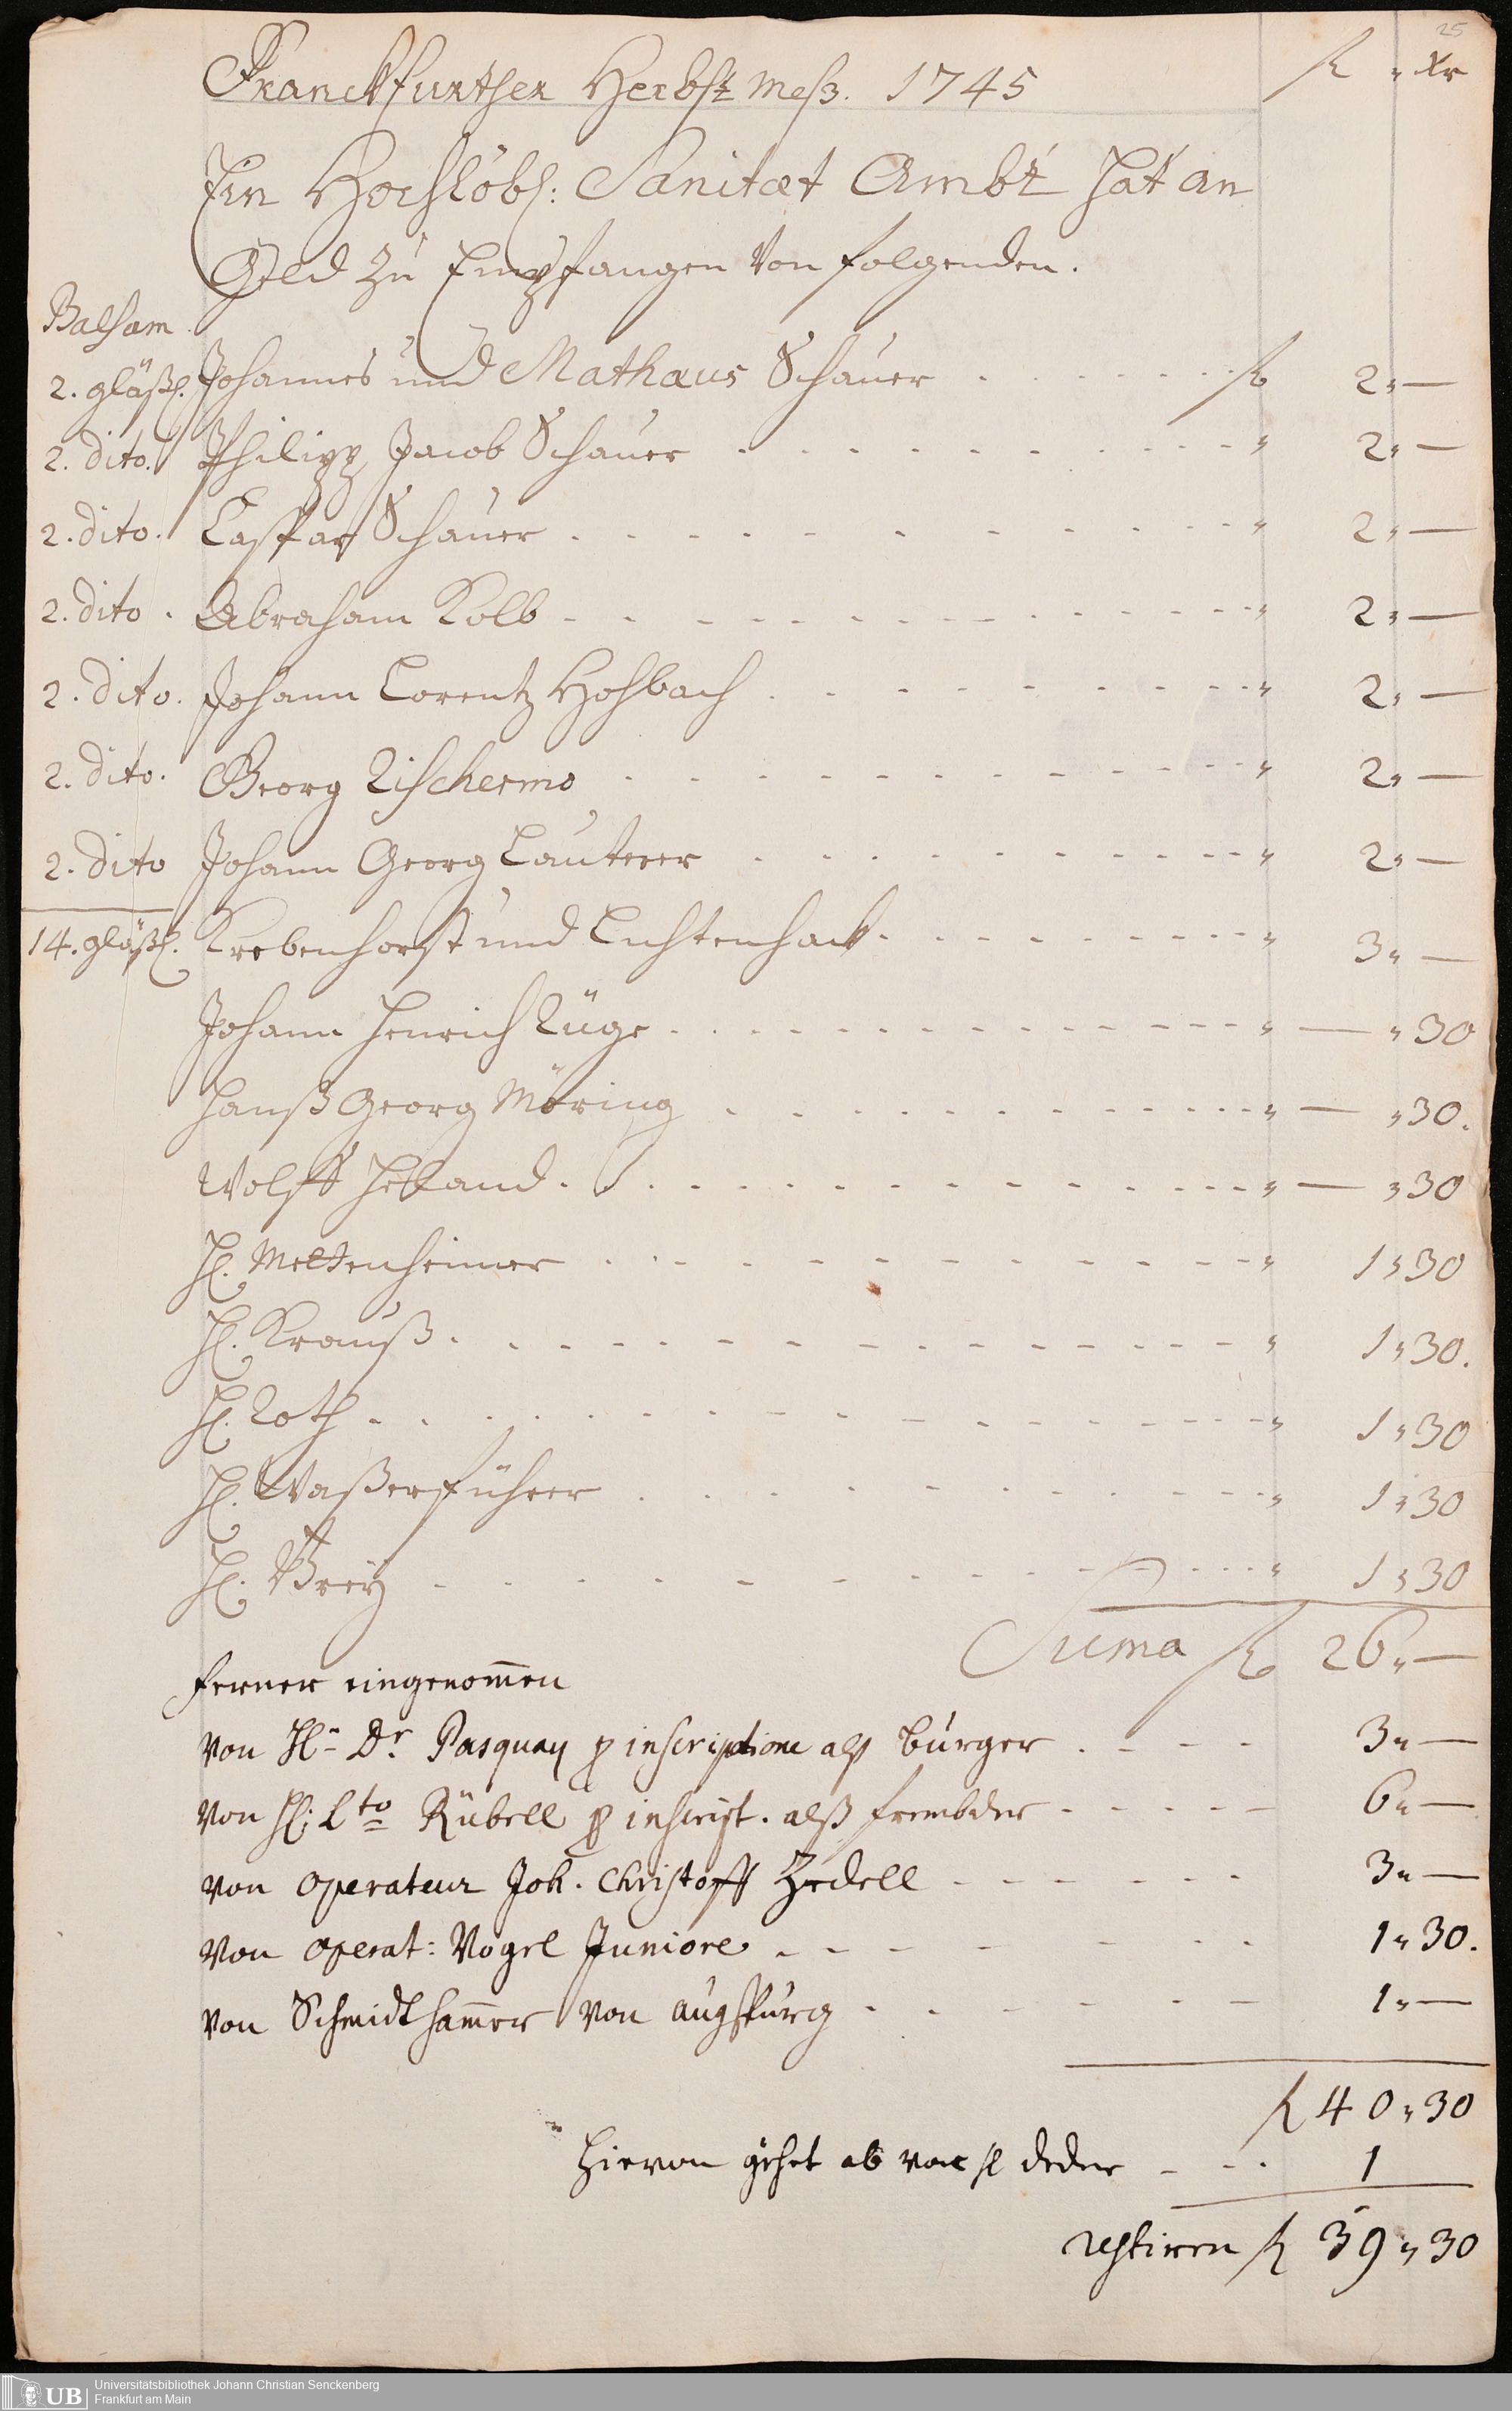 25
Franckfurther Herbst Meß. 1745 fl " Xr
Ein Hochlöbl: Sanitæt Ambt hat an
Geld zu Empfangen Von folgenden.
Balsam
2. gläßl. Johannes und Mathæus Schauer . . . . . . . fl 2 " —
2. dito. Philipp Jacob Schauer . . . . . . . . . " 2 " —
2. dito. Caspar Schauer . . . . . . . . . . " 2 " —
2. dito. Abraham Kolb . . . . . . . . . . " 2 " —
2. dito. Johann Lorentz Hohbach . . . . . . . . . " 2 " —
2. dito. Georg Lischermo . . . . . . . . . . " 2 " —
2. dito Johann Georg Lauterer . . . . . . . . . " 2 " —
14. gläßl. Krebenhorst und Lichtenhack . . . . . . . . " 3 " —
Johann Henrich Lüge . . . . . . . . . . " — " 30
Hanß Georg Möring . . . . . . . . . . " — " 30.
Wolff Heband . . . . . . . . . . . " — " 30
H. Mettenheimer . . . . . . . . . . " 1 " 30
H. Krauß . . . . . . . . . . . . " 1 " 30.
H. Roth . . . . . . . . . . . . . " 1 " 30
H. Waßerführer . . . . . . . . . . " 1 " 30
H. Breÿ . . . . . . . . . . . . " 1 " 30
Suma fl 26 " —
ferner eingenom̄en
Von H. Dr. Pasquay p inscriptione alß bürger . . . . 3 " —
Von H. Lto Rübell p inscript. alß frembder . . . . . 6 " —
Von Operateur Joh. Christoff Zedell . . . . . . 3 " —
Von Operat: Vogel Juniore . . . . . . . 1 " 30.
Von Schmidtham̄er Von Augspurg . . . . . . . 1 " —
fl 40 " 30
hievon gehet ab vor H Deder . . . 1
restiren fl 39 " 30
UB
Universitätsbibliothek Johann Christian Senckenberg
Frankfurt am Main